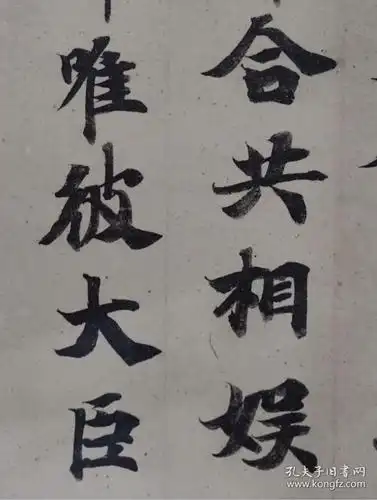 合共相娱
唯彼大臣
孔夫子旧书网
kongfz.com